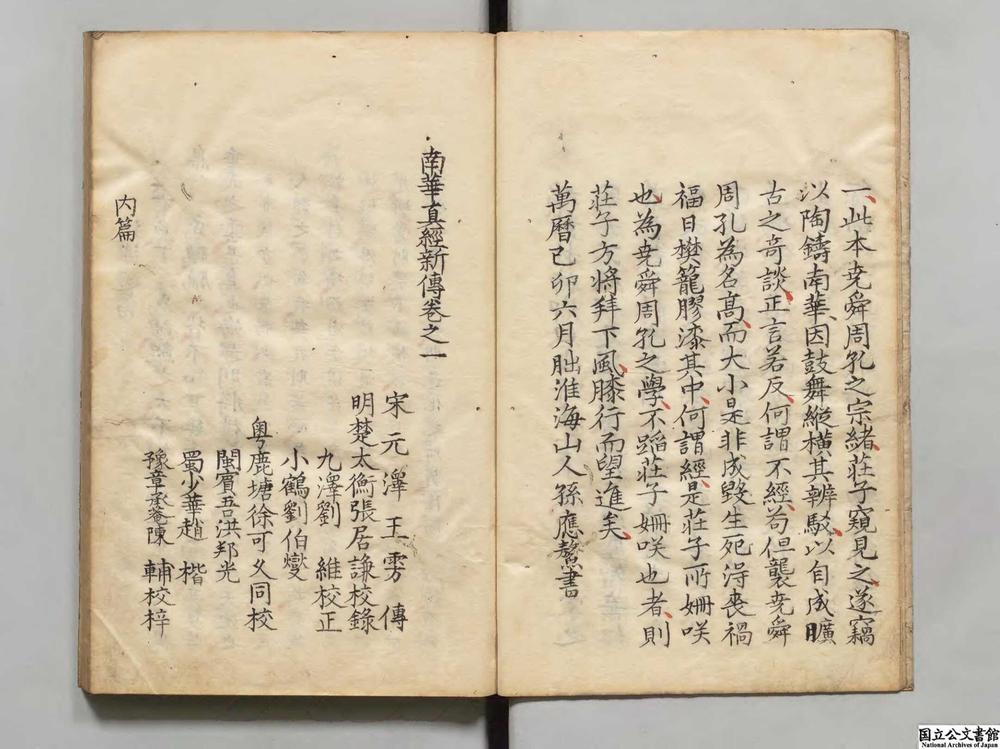 一此本尭舜周孔之宗緒莊子窺見之遂竊
以陶鑄南華因鼓舞縱横其辨駁以自成曠
古之奇談正言若反何謂不經茍但襲尭舜
周孔為名髙而大小是非成毀生死淂喪禍
福日樊籠膠漆其中何謂經是莊子所姍咲
也為尭舜周孔之學不蹈莊子姍咲也者則
莊子方將拜下風膝行而望進矣
萬曆己卯六月朏淮海山人孫應鰲書
南華真經新傳卷之一
宋元澤王雱傳
明楚太衡張居謙校錄
九澤劉維校正
小鶴劉伯燮
粤鹿塘徐可久同校
閩賓吾洪邦光
蜀少華趙楷
豫章承菴陳輔校梓
内篇
国立公文書館
National Archives of Japan